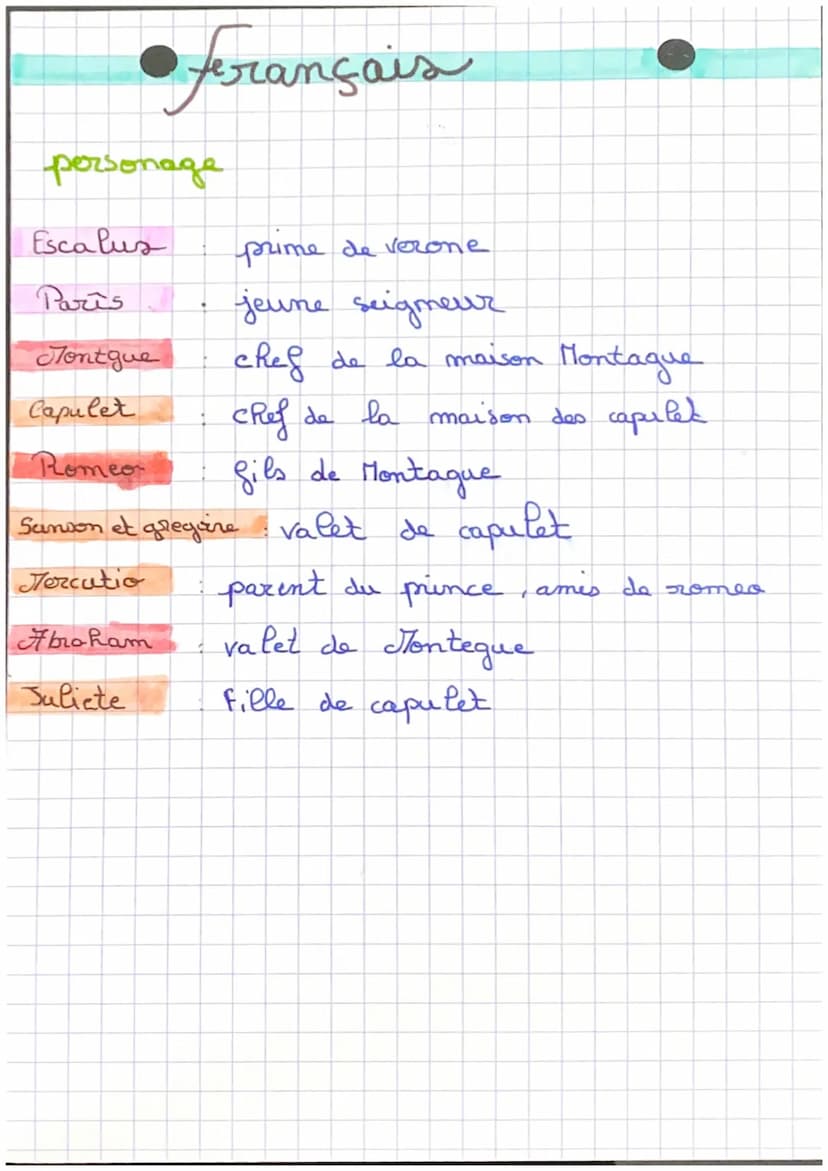 français
personage
Escalus : prime de verone
Paris : jeune seigneur
Montgue : chef de la maison Montague
Capulet : chef de la maison des capulet
Romeo : fils de Montague
Samson et gregoire : valet de capulet
Mercutio : parent du prince, amis de romeo
Abraham : valet de Montegue
Juliete : fille de capulet